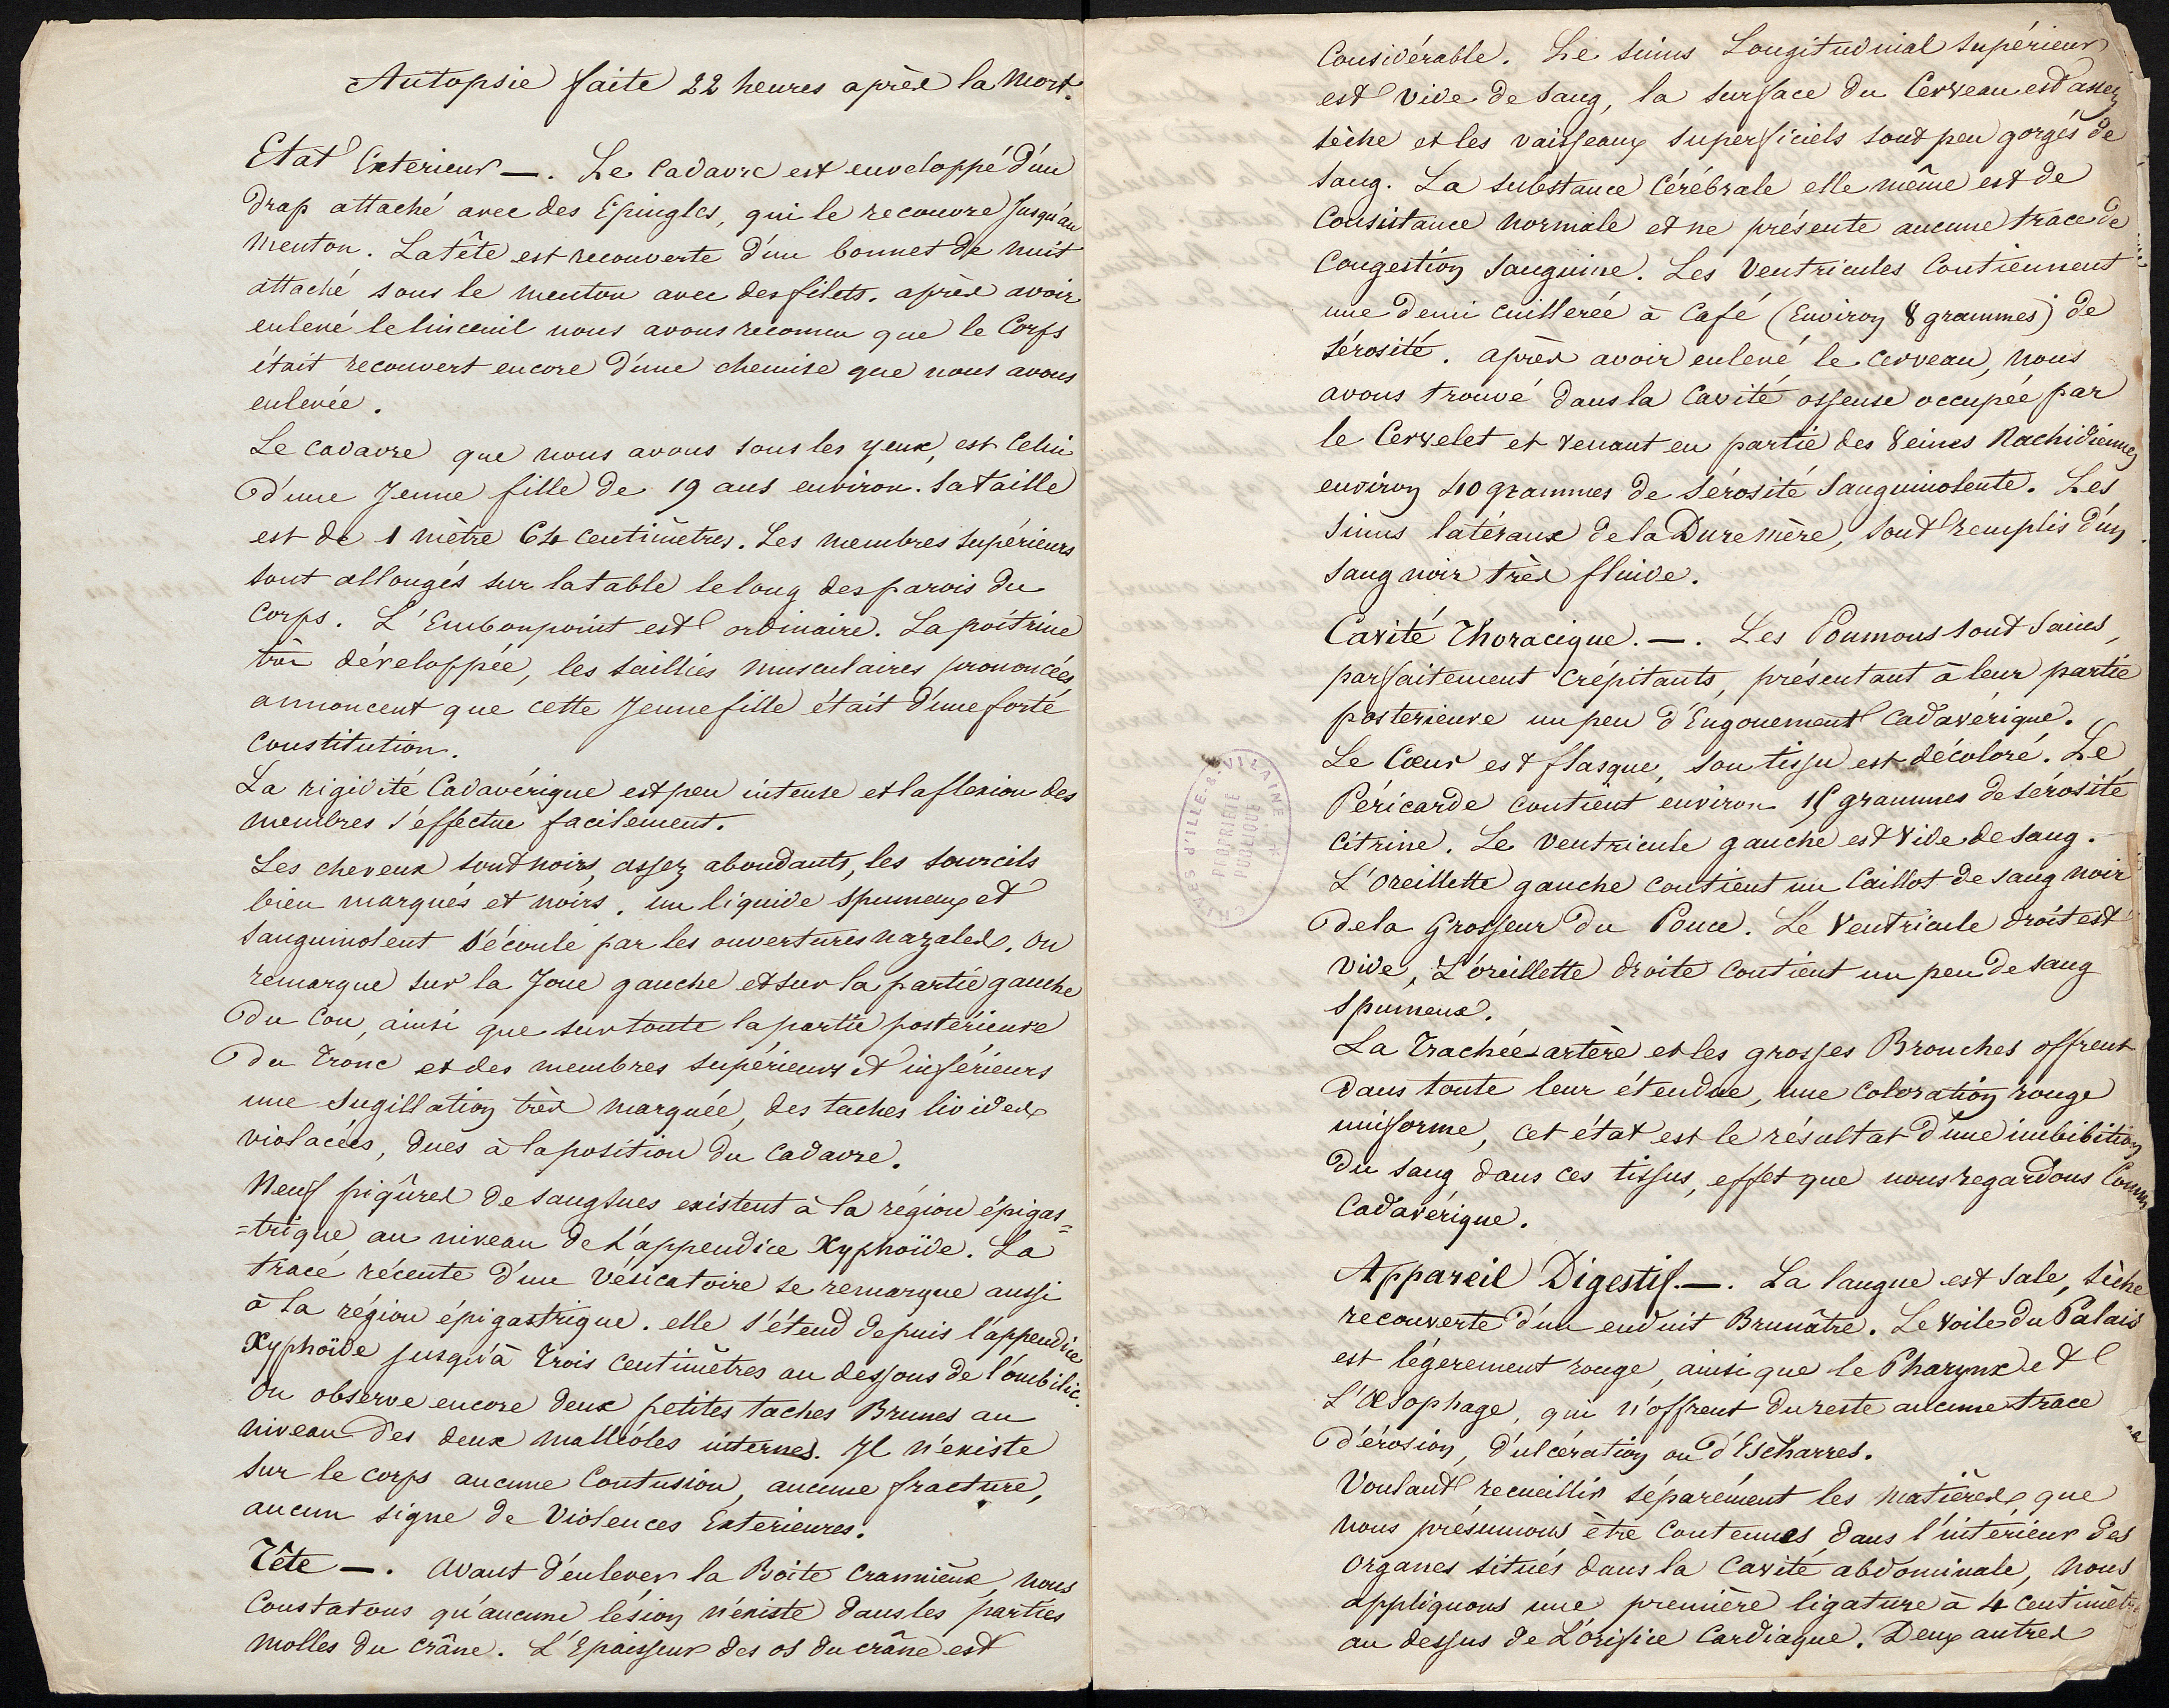 Autopsie faite 22 heures après la Mort.
Etat Exterieur —. Le Cadavre est enveloppé d'un
drap attaché avec des Epingles, qui le recouvre Jusqu'au
Menton. La tête est recouverte d'un bonnet de nuit
attaché sous le menton avec des filets. après avoir
enlevé le linceuil nous avons reconnu que le Corps
était recouvert encore d'une chemise que nous avons
enlevée.
Le cadavre que nous avons sous les yeux, est Celui
d'une Jeune fille de 19 ans environ. Sa taille
est de 1 mètre 64 centimètres. Les membres supérieurs
sont allongés sur la table le long des parois du
Corps. L'Embonpoint est ordinaire. La poitrine
très développée, les saillies musculaires prononcées
annoncent que cette Jeune fille était d'une forte
Constitution.
La rigidité Cadavérique est peu intense et la flexion des
membres s'effectue facilement.
Les cheveux sont noirs, assez abondants, les sourcils
bien marqués et noirs. un liquide spumeux et
sanguinolent s'écoule par les ouvertures nazales. On
remarque sur la Joue gauche et sur la partie gauche
du Cou, ainsi que sur toute la partie postérieure
du Tronc et des membres supérieurs et inférieurs
une sugillation très marquée, des taches livides
violacées, dues à la position du Cadavre.
Neuf piqûres de sangsues existent à la région épigas=
=trique au niveau de L'appendice Xyphoïde. La
trace récente d'un Vésicatoire se remarque aussi
à la région épigastrique. elle s'étend depuis l'appendice
Xyphoïde jusqu'à Trois Centimètres au dessous de l'ombilic.
On observe encore deux petites taches Brunes au
niveau des deux malléoles internes. Il n'existe
sur le corps aucune Contusion, aucune fracture,
aucun signe de Violences Exterieures.
Tête —. Avant d'enlever la Boite Crannienne, nous
Constatons qu'aucune lésion n'existe dans les parties
Molles du Crâne. L'Epaisseur des os du crâne est
Considérable. Le sinus Longitudinal supérieur
est vide de Sang, la surface du Cerveau est assez
sèche et les vaisseaux superficiels sont peu gorgés de
Sang. La substance Cérébrale elle même est de
Consistance normale et ne présente aucune trace de
Congestion Sanguine. Les Ventricules Contiennent
une demi cuillerée à Café (Environ 8 grammes) de
sérosité. après avoir enlevé le cerveau, nous
avons trouvé dans la Cavité osseuse occupée par
le Cervelet et venant en partie des Veines Rachidiennes
environ 40 grammes de Sérosité Sanguinolente. Les
Sinus latéraux de la Dure Mère, sont remplis d'un
Sang noir très fluide.
Cavité Thoracique. —. Les Poumons sont Sains,
parfaitement Crépitants, présentant à leur partie
posterieure un peu d'Engouement Cadavérique.
Le Cœur est flasque, son tissu est décoloré. Le
Péricarde contient environ 15 grammes de sérosité
Citrine. Le Ventricule gauche est Vide de sang.
L'Oreillette gauche contient un Caillot de sang noir
de la Grosseur du Pouce. Le Ventricule droit est
vide, L'oreillette droite contient un peu de sang
spumeux.
La Trachée-artère et les grosses Bronches offrent
dans toute leur étendue, une Coloration rouge
uniforme, cet état est le résultat d'une imbibition
du sang dans ces tissus, effet que nous regardons Comme
Cadavérique.
Appareil Digestif. —. La langue est sale, sèche
recouverte d'un enduit Brunâtre. Le Voile du Palais
est légerement rouge, ainsi que le Pharynx et
L'Œsophage, qui n'offrent du reste aucune trace
d'érosion, d'ulcération ou d'Escharres.
Voulant recueillir séparément les matières que
nous présumons être Contenues dans l'intérieur des
Organes situés dans la Cavité abdominale, nous
appliquons une première ligature à 4 Centimètres
au dessus de L'orifice Cardiaque. Deux autres
ARCHIVES d'ILLE-&-VILAINE
PROPRIÉTÉ
PUBLIQUE